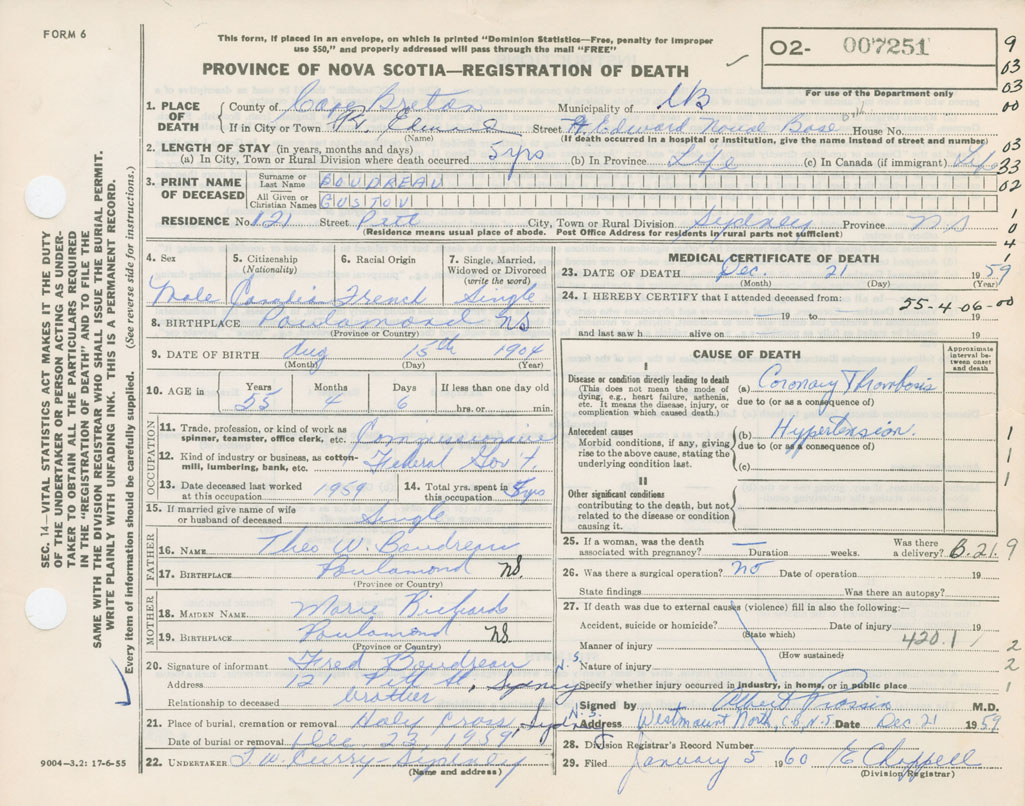 FORM 6
This form, if placed in an envelope, on which is printed "Dominion Statistics—Free, penalty for improper
use $50," and properly addressed will pass through the mail "FREE"
PROVINCE OF NOVA SCOTIA—REGISTRATION OF DEATH
O2- 007251
For use of the Department only
9
03
03
00
03
33
02
1
0
4
1
1. PLACE OF DEATH
County of Cape Breton Municipality of CB
If in City or Town Pt. Edward Street Pt Edward Naval Base House No.
(Name) (If death occurred in a hospital or institution, give the name instead of street and number)
2. LENGTH OF STAY (in years, months and days)
(a) In City, Town or Rural Division where death occurred 5yrs (b) In Province Life (c) In Canada (if immigrant) Life
3. PRINT NAME OF DECEASED
Surname or Last Name BOUDREAU
All Given or Christian Names GUSTOV
RESIDENCE No. 121 Street Pitt City, Town or Rural Division Sydney Province NS
(Residence means usual place of abode. Post Office Address for residents in rural parts not sufficient)
4. Sex 5. Citizenship (Nationality) 6. Racial Origin 7. Single, Married, Widowed or Divorced (write the word)
Male Canadian French Single
8. BIRTHPLACE Poulamond NS
(Province or Country)
9. DATE OF BIRTH Aug 15th 1904
(Month) (Day) (Year)
10. AGE in Years Months Days If less than one day old
55 4 6 hrs. or min.
OCCUPATION
11. Trade, profession, or kind of work as spinner, teamster, office clerk, etc. Commissionaire
12. Kind of industry or business, as cotton-mill, lumbering, bank, etc. Federal Gov't.
13. Date deceased last worked at this occupation 1959 14. Total yrs. spent in this occupation 5yrs
15. If married give name of wife or husband of deceased Single
FATHER
16. NAME Theo W. Boudreau
17. BIRTHPLACE Poulamond NS.
(Province or Country)
MOTHER
18. MAIDEN NAME Marie Richards
19. BIRTHPLACE Poulamond NS.
(Province or Country)
20. Signature of informant Fred Boudreau
Address 121 Pitt St, Sydney N.S.
Relationship to deceased brother
21. Place of burial, cremation or removal Holy Cross, Syd. N.S.
Date of burial or removal Dec 23, 1959
22. UNDERTAKER T.W. Curry—Sydney
(Name and address)
9004—3.2: 17-6-55
MEDICAL CERTIFICATE OF DEATH
23. DATE OF DEATH Dec. 21 1959
(Month) (Day) (Year)
24. I HEREBY CERTIFY that I attended deceased from: 55-4-06-00
— 19 to — 19
and last saw h alive on — 19
CAUSE OF DEATH
Approximate interval between onset and death
I
Disease or condition directly leading to death
(This does not mean the mode of dying, e.g., heart failure, asthenia, etc. It means the disease, injury, or complication which caused death.)
(a) Coronary Thrombosis
due to (or as a consequence of)
Antecedent causes
Morbid conditions, if any, giving rise to the above cause, stating the underlying condition last.
(b) Hypertension.
due to (or as a consequence of)
(c)
1
1
1
II
Other significant conditions
contributing to the death, but not related to the disease or condition causing it.
25. If a woman, was the death associated with pregnancy? — Duration weeks. Was there a delivery? B.21.9
26. Was there a surgical operation? no Date of operation 19
State findings Was there an autopsy?
27. If death was due to external causes (violence) fill in also the following:—
Accident, suicide or homicide? Date of injury 19
(State which) 420.1
Manner of injury 2
(How sustained)
Nature of injury 2
Specify whether injury occurred in industry, in home, or in public place 1
Signed by Albert M.D.
Address Westmount North, C.B., N.S. Date Dec 21 1959
28. Division Registrar's Record Number
29. Filed January 5 1960 E Chappell
(Division Registrar)
SEC. 14—VITAL STATISTICS ACT MAKES IT THE DUTY
OF THE UNDERTAKER OR PERSON ACTING AS UNDER-
TAKER TO OBTAIN ALL THE PARTICULARS REQUIRED
IN THE "REGISTRATION OF DEATH" AND TO FILE THE
SAME WITH THE DIVISION REGISTRAR WHO SHALL ISSUE THE BURIAL PERMIT.
WRITE PLAINLY WITH UNFADING INK. THIS IS A PERMANENT RECORD.
Every item of information should be carefully supplied. (See reverse side for instructions.)